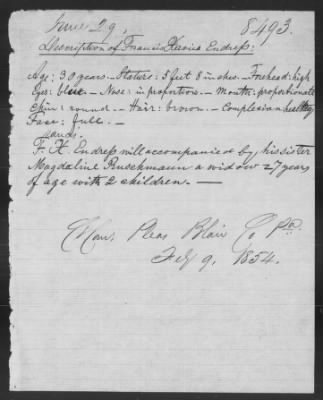 June 29, 8493.
Description of Francis Xavier Endreß:
Age: 30 years – Stature: 5 feet 8 inches. – Forehead: high
Eyes: blue – Nose: in proportion. – Mouth: proportionate
Chin: round. – Hair: brown. – Complexion healthy
Face: full. –
F. X. Endreß will accompanied by his sister
Magdaline Ruschmann a widow 27 years
of age with 2 children. –
Com. Pleas Blair Co Pa
Feby 9, 1854.